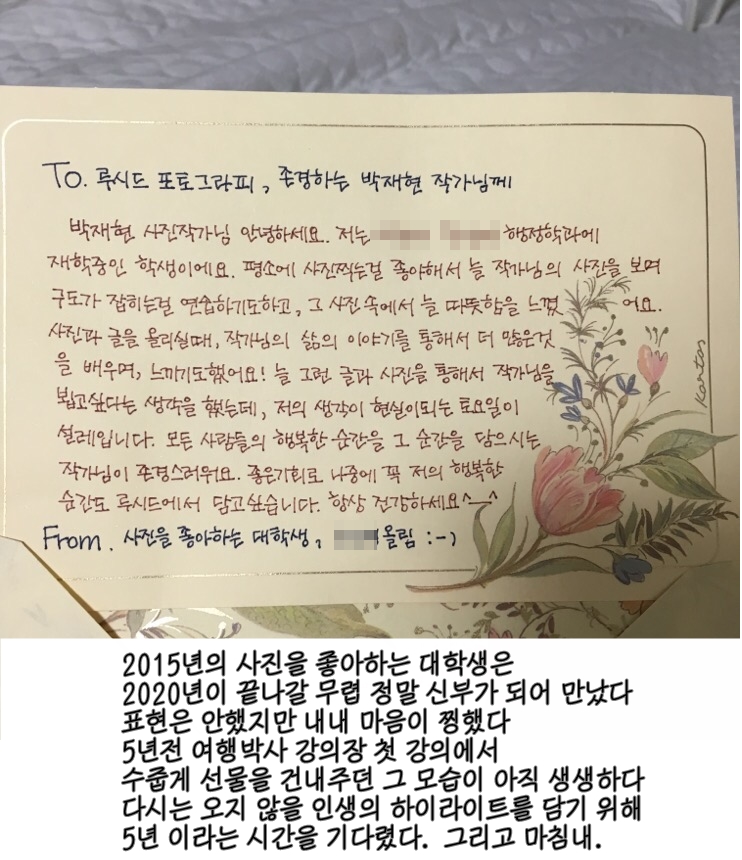 To. 루시드 포토그라피, 존경하는 박재현 작가님께
박재현 사진작가님 안녕하세요. 저는 행정학과에
재학중인 학생이에요. 평소에 사진찍는걸 좋아해서 늘 작가님의 사진을 보며
구도가 잡히는걸 연습하기도하고, 그 사진 속에서 늘 따뜻함을 느꼈어요.
사진과 글을 올리실때, 작가님의 삶의 이야기를 통해서 더 많은것
을 배우며, 느끼기도했어요! 늘 그런 글과 사진을 통해서 작가님을
뵙고싶다는 생각을 했는데, 저의 생각이 현실이되는 토요일이
설레입니다. 모든 사람들의 행복한 순간을 그 순간을 담으시는
작가님이 존경스러워요. 좋은기회로 나중에 꼭 저의 행복한
순간도 루시드에서 담고싶습니다. 항상 건강하세요^__^
From. 사진을 좋아하는 대학생, 올림 :-)
Kartos
2015년의 사진을 좋아하는 대학생은
2020년이 끝나갈 무렵 정말 신부가 되어 만났다
표현은 안했지만 내내 마음이 찡했다
5년전 여행박사 강의장 첫 강의에서
수줍게 선물을 건내주던 그 모습이 아직 생생하다
다시는 오지 않을 인생의 하이라이트를 담기 위해
5년 이라는 시간을 기다렸다. 그리고 마침내.